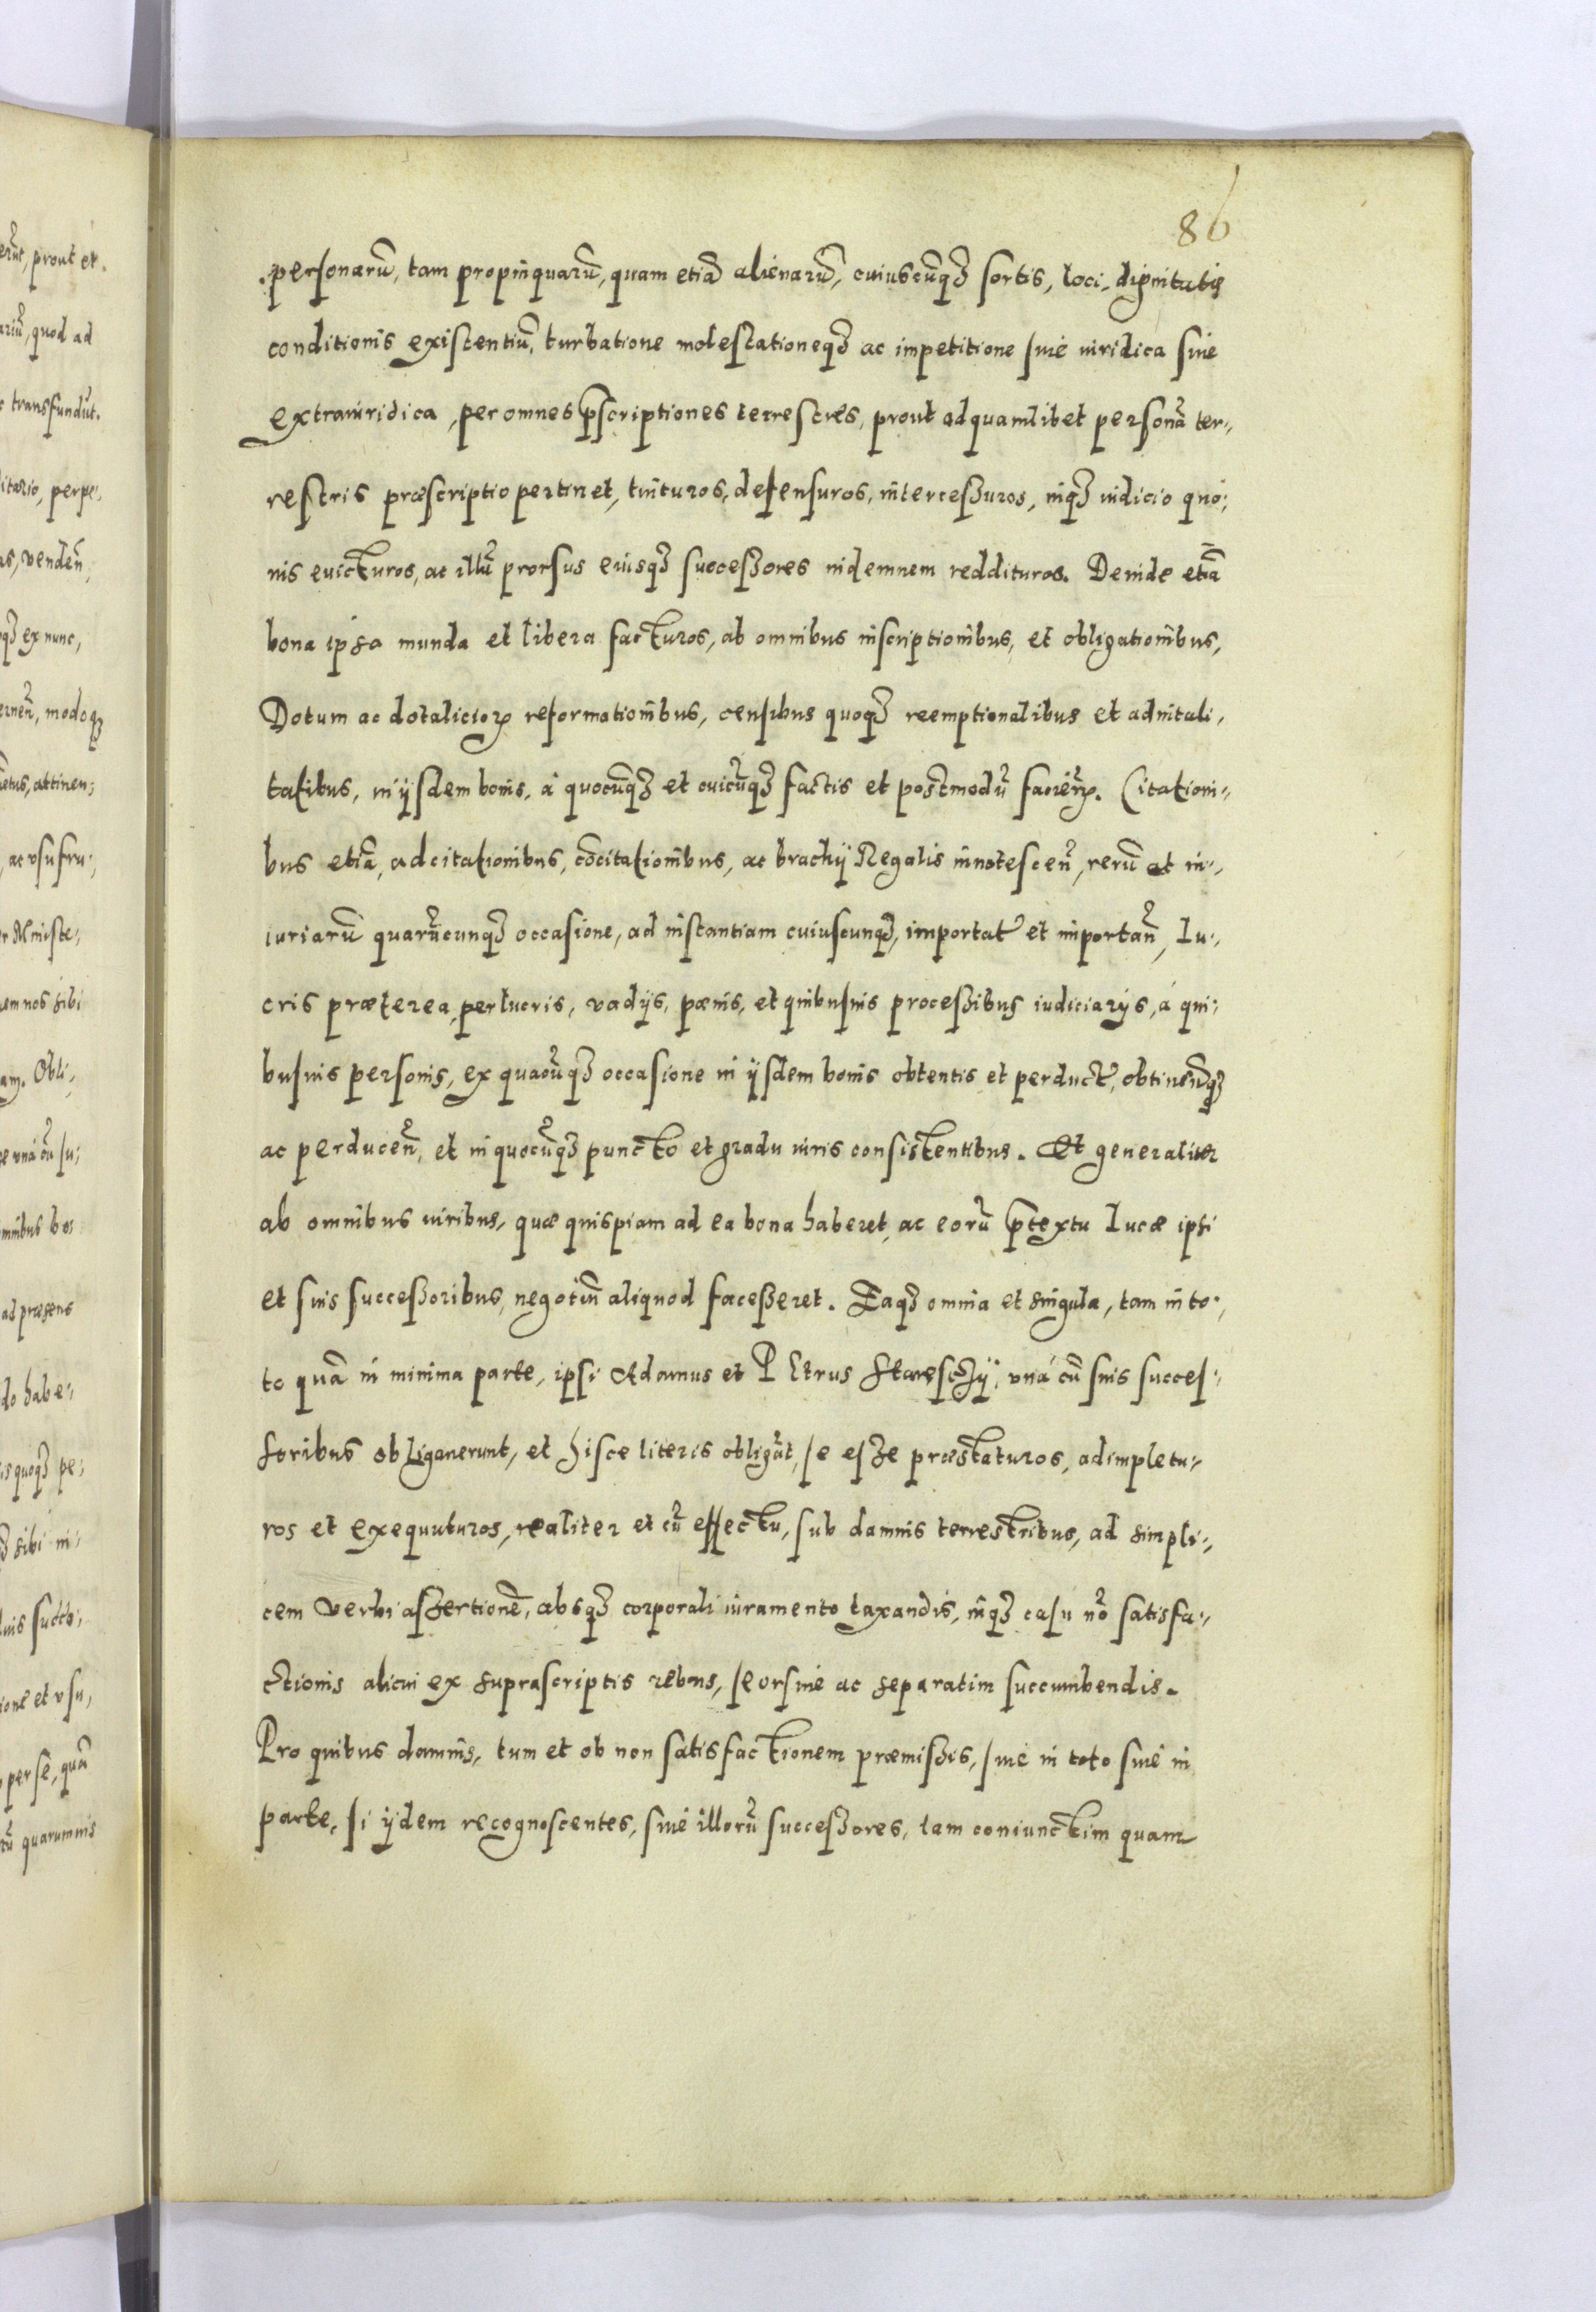 86
personarũ, tam propinquarũ, quam etiã alienarũ, cuiuscũqȝ sortis, loci, dignitatis
conditionis existentiũ, turbatione molestationeqȝ ac impetitione siue iuridica siue
extraiuridica, per omnes p̃scriptiones terrestres, prout ad quamlibet personã ter-
restris præscriptio pertinet, tuituros, defensuros, intercessuros, inqȝ iudicio quo-
uis euicturos, ac illũ prorsus eiusqȝ successores indemnem reddituros. Deinde etiã
bona ipsa munda et libera facturos, ab omnibus inscriptionibus, et obligationibus,
Dotum ac dotalicioꝝ reformationibus, censibus quoqȝ reemptionalibus et aduitali-
tatibus, in ijsdem bonis, à quocũqȝ et cuicũqȝ factis et postmodũ facieñ. Citationi-
bus etiã, adcitationibus, cõcitationibus, ac brachij Regalis innotesceñ, rerũ et in-
iuriarũ quarũcunqȝ occasione, ad instantiam cuiuscunqȝ, importat̃ et importañ, Lu-
cris præterea, perlucris, vadijs, pœnis, et quibusuis processibus iudiciarijs, á qui-
busuis personis, ex quacũqȝ occasione in ijsdem bonis obtentis et perduct̃, obtineñqȝ
ac perduceñ, et in quocũqȝ puncto et gradu iuris consistentibus. Et generaliter
ab omnibus iuribus, quæ quispiam ad ea bona haberet, ac eorũ p̃textu Lucæ ipsi
et suis successoribus, negotiũ aliquod facesseret. Eaqȝ omnia et singula, tam in to-
to quã in minima parte, ipsi Adamus et PEtrus Staresczij, vná cũ suis succes-
soribus obligauerunt, et hisce literis obligãt, se esse præstaturos, adimpletu-
ros et exequuturos, realiter et cũ effectu, sub damnis terrestribus, ad simpli-
cem verbi assertionẽ, absqȝ corporali iuramento taxandis, inqȝ casu nõ satisfa-
ctionis alicui ex suprascriptis rebus, seorsiue ac separatim succumbendis.
Pro quibus damnis, tum et ob non satisfactionem præmissis, siue in toto siue in
parte, si ijdem recognoscentes, siue illorũ successores, tam coniunctim quam